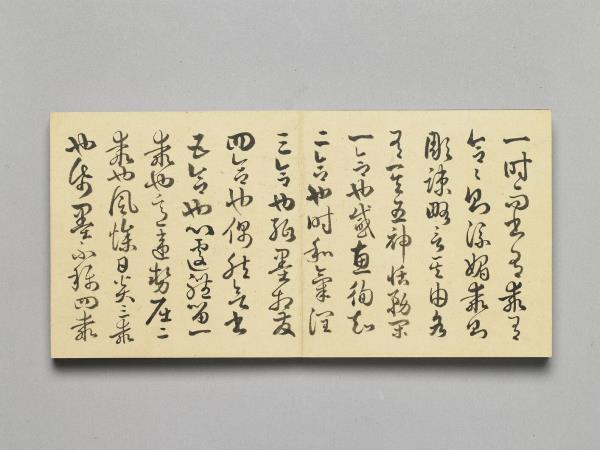 一時而書有乖有
合々則流媚乖則
彫疎略言其由各
有其五神怡務閑
一合也感惠徇知
二合也時和氣潤
三合也紙墨相發
四合也偶然欲書
五合也心遽體留一
乖也意違勢屈二
乖也風燥日炎三乖
也紙墨不稱四乖